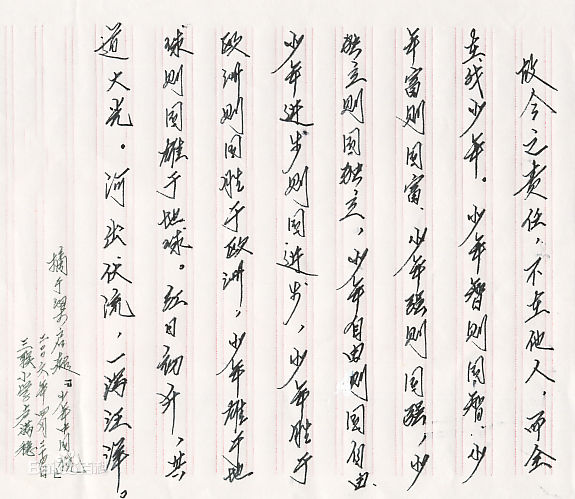 故今之责任，不在他人，而全
在我少年。少年智则国智，少
年富则国富，少年强则国强，少
年独立则国独立，少年自由则国自由，
少年进步则国进步，少年胜于
欧洲则国胜于欧洲，少年雄于地
球则国雄于地球。红日初升，其
道大光。河出伏流，一泻汪洋。
摘于梁启超《少年中国说》
二〇〇六年四月二十
三联小学